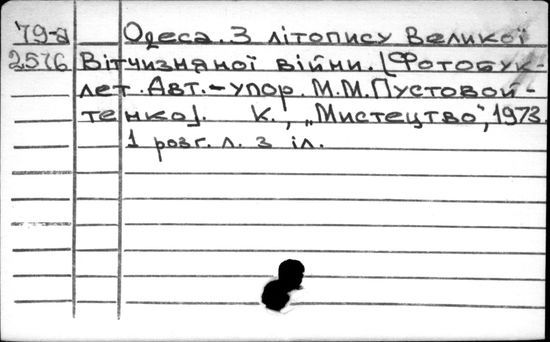 79-а Одеса. З літопису Великої
2576 Вітчизняної війни. [Фотобук-
лет. Авт.-упор. М.М.Пустовой-
тенко]. К., „Мистецтво", 1973.
1 розг. л. з іл.